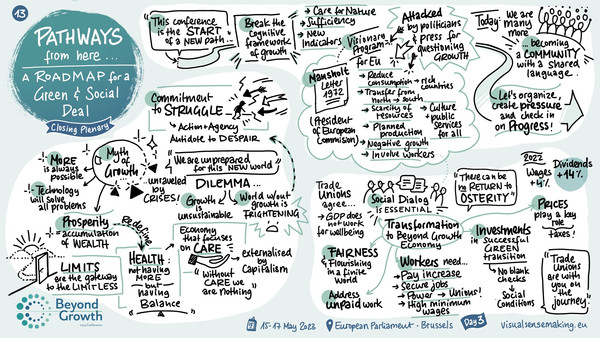 13
PATHWAYS
from here ...
A ROADMAP for a
Green & Social
Deal
Closing Plenary
"This conference
is the START
of a NEW path."
Break the
Cognitive
framework
of growth
→ Care for Nature
→ Sufficiency
→ New
Indicators
Visionary
Program
for EU
Attacked
by politicians
& press for
questioning
GROWTH
Today
we are
many
more
... becoming a
COMMUNITY
with a shared
language.
Let's organize,
create pressure
and check in
on Progress!
Mansholt
Letter
1972
(President
of European
Commission)
→ Reduce
consumption → rich
countries
→ Transfer from
north → south
→ Scarcity of
resources
→ Culture
& public
services
for all
→ Planned
production
→ Negative growth
→ Involve workers
Commitment
to STRUGGLE...
↳ Action + Agency
Antidote to DESPAIR
"We are unprepared
for this NEW world"
Myth
of
Growth
→ MORE
is always
possible
→ Technology
will solve
all problems
unraveled
by
CRISES!
DILEMMA...
Growth
is
unsustainable
World w/out
growth is
FRIGHTENING
Prosperity
accumulation
of WEALTH
Redefine
LIMITS
are the gateway
to the LIMITLESS
HEALTH:
not having
MORE
but
having
Balance
Economy
that focuses
on CARE
"without
CARE we
are nothing"
→ externalised
by
Capitalism
Trade
Unions
agree...
→ GDP does
not work
for wellbeing
Social Dialog
is ESSENTIAL
"There can be
no RETURN to
OSTERITY"
2022
Wages
+4%
Dividends
+14%
Transformation
to Beyond Growth
Economy
FAIRNESS
Flourishing
in a finite
World
Address
unpaid work
Workers need...
→ Pay increase
→ Secure jobs
→ Power → Unions!
→ High minimum
wages
Investments
in successful
GREEN
transition
→ No blank
checks
↳ Social
Conditions
PRICES
play a key
role
↳ taxes!
"Trade
Unions
are with
you on
the
journey"
Beyond
Growth
15-17 May 2023
European Parliament · Brussels
Day 3
visualsensemaking.eu